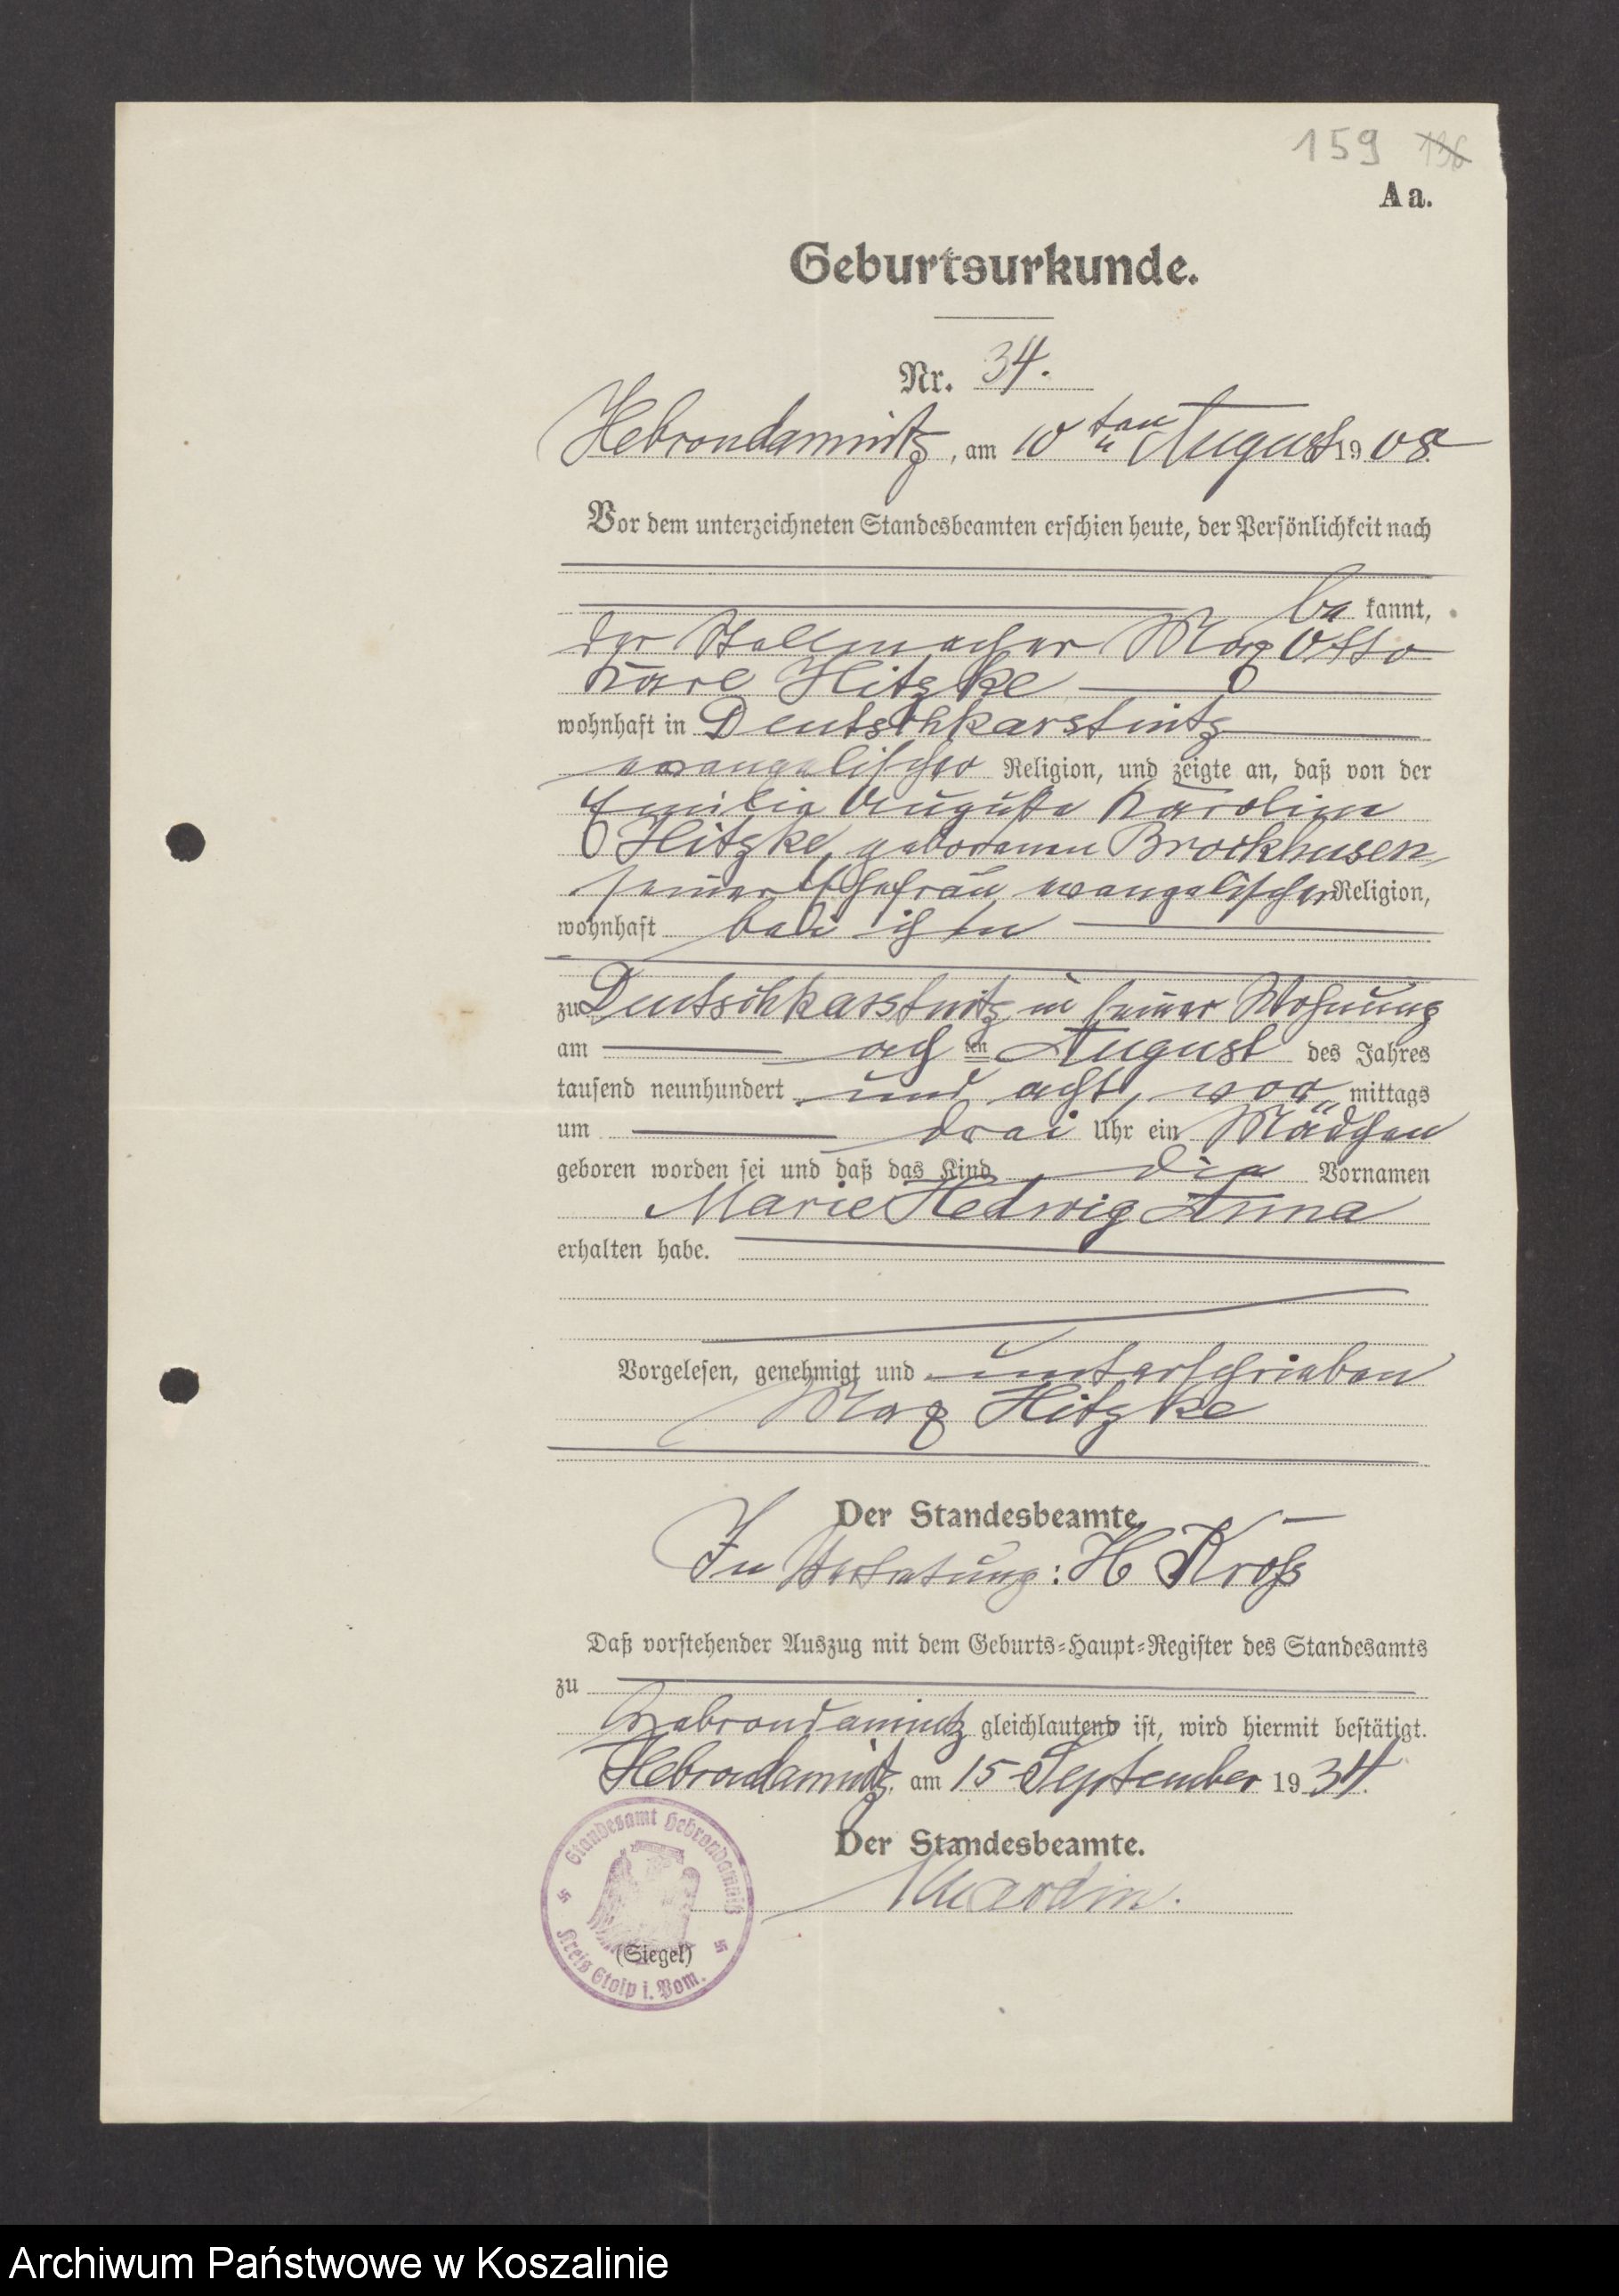 159 136
Aa.
Geburtsurkunde.
Nr. 34.
Hebrondamnitz, am 10ten August 1908
Vor dem unterzeichneten Standesbeamten erschien heute, der Persönlichkeit nach
be kannt,
der Stellmacher Max Otto
Karl Hitzke
wohnhaft in Deutschkarstnitz
evangelischer Religion, und zeigte an, daß von der
Emilie Auguste Karoline
Hitzke, geborenen Brockhusen
seiner Ehefrau evangelischer Religion,
wohnhaft bei ihm
zu Deutschkarstnitz in seiner Wohnung
am acht ten August des Jahres
tausend neunhundert und acht, vor mittags
um drei Uhr ein Mädchen
geboren worden sei und daß das Kind die Vornamen
Marie Hedwig Anna
erhalten habe.
Vorgelesen, genehmigt und unterschrieben
Max Hitzke
Der Standesbeamte.
In Vertretung: H Kroß
Daß vorstehender Auszug mit dem Geburts-Haupt-Register des Standesamts
zu
Hebrondamnitz gleichlautend ist, wird hiermit bestätigt.
Hebrondamnitz, am 15 September 1934.
Der Standesbeamte.
(Siegel)
Standesamt Hebrondamnitz
Kreis Stolp i. Pom.
Archiwum Państwowe w Koszalinie